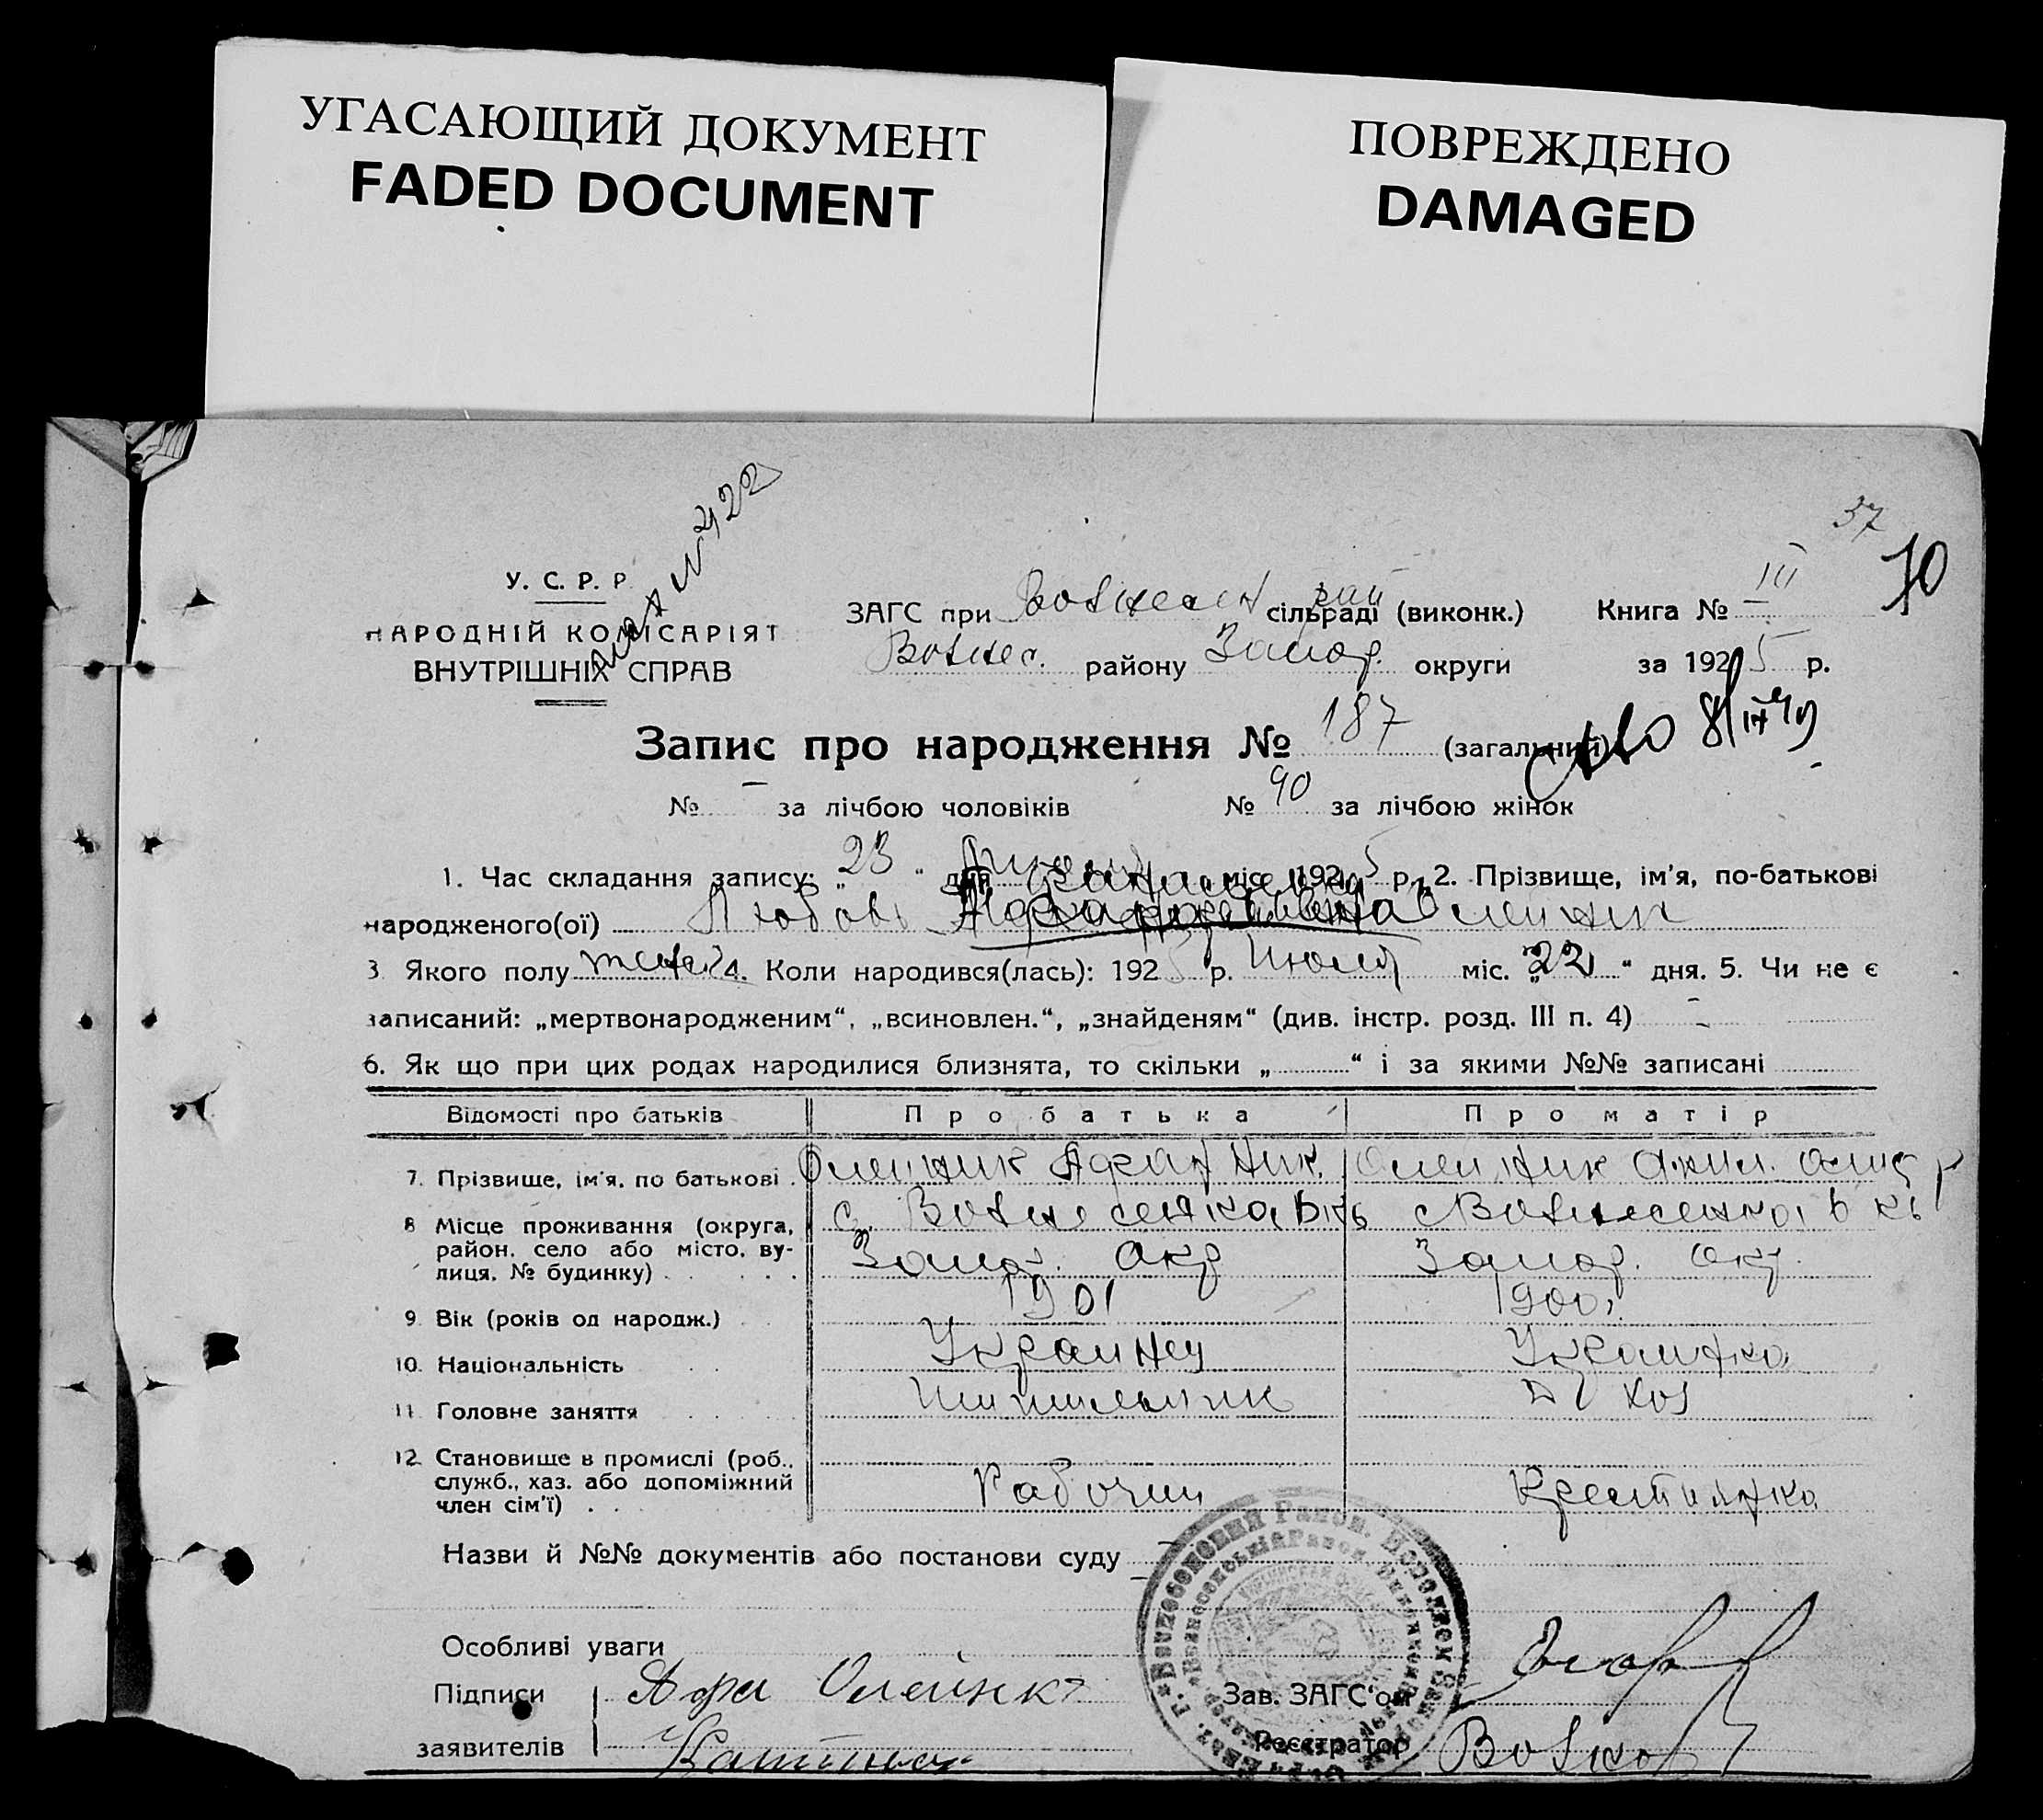 УГАСАЮЩИЙ ДОКУМЕНТ
FADED DOCUMENT
ПОВРЕЖДЕНО
DAMAGED
37
70
У. С. Р. Р.
НАРОДНІЙ КОМІСАРІЯТ
ВНУТРІШНІХ СПРАВ
ЗАГС при Вознесен рай сільраді (виконк.) Книга № III
Вознес. району Запор. округи за 1925 р.
Запис про народження № 187 (загальний)
№ - за лічбою чоловіків № 90 за лічбою жінок
1. Час складання запису: „23“ дня міс. 1925 р. 2. Прізвище, ім'я, по-батькові
народженого(ої) Любовь
3 Якого полу 4. Коли народився(лась): 1925 р. Июля міс. „22“ дня. 5. Чи не є
записаний: „мертвонародженим“, „всиновлен.“, „знайденям“ (див. інстр. розд. III п. 4) -
6. Як що при цих родах народилися близнята, то скільки „ “ і за якими №№ записані
Відомості про батьків Про батька Про матір
7. Прізвище, ім'я, по батькові Олейник Афан Ник. Олейник
8 Місце проживання (округа, район, село або місто, вулиця, № будинку) с. Вознесенка с Вознесенка
Запор. Окр Запор. Окр.
9. Вік (років од народж.) 1901 1900
10. Національність Украинец Украинка
11. Головне заняття Дхоз
12 Становище в промислі (роб., служб., хаз. або допоміжний член сім'ї) Рабочий Крестиянка
Назви й №№ документів або постанови суду -
Особливі уваги
Підписи Афа Олейник
заявителів
Зав. ЗАГС'ом
Реєстратор